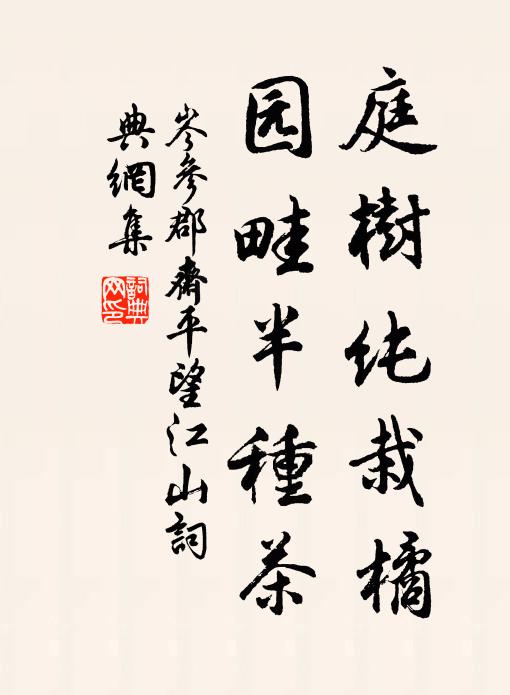 庭樹纯栽橘
园畦半種茶
岑參郡齋平望江山詞
典網集
詞典网印